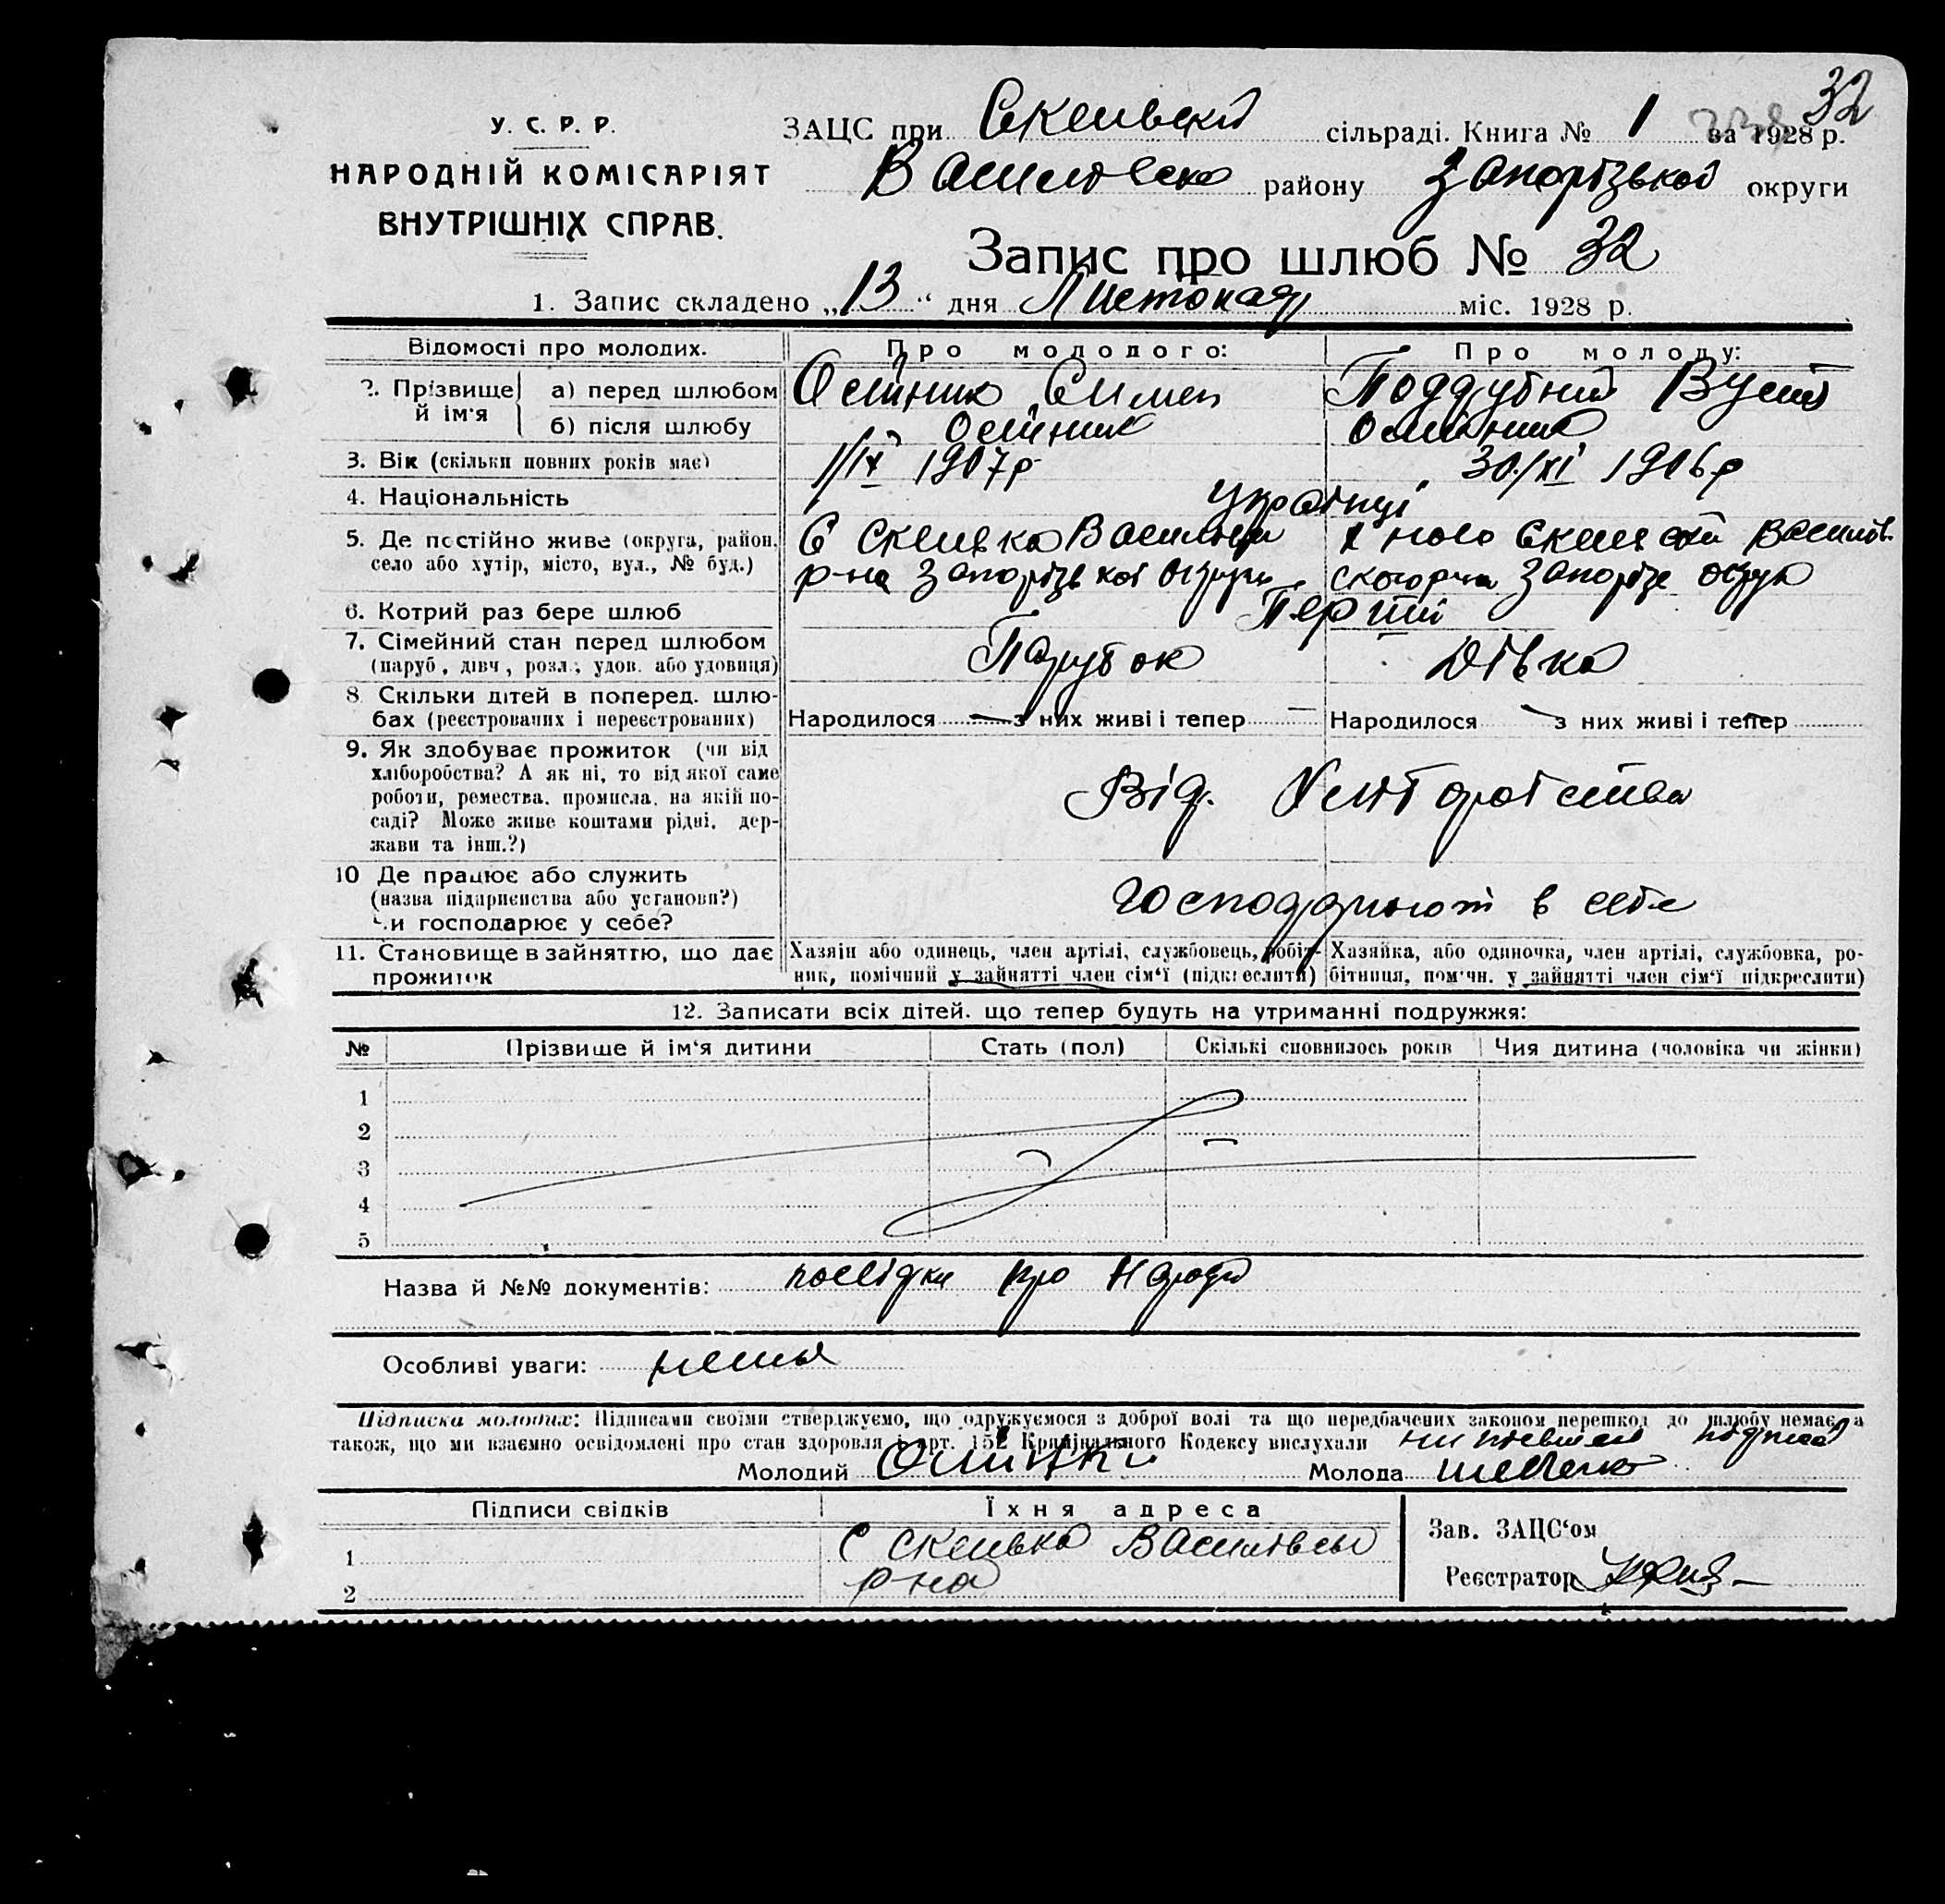 32
У. С. Р. Р.
НАРОДНІЙ КОМІСАРІЯТ
ВНУТРІШНІХ СПРАВ.
ЗАЦС при Скельвскй сільраді. Книга № 1 за 1928 р.
Василевско району Запорізької округи
Запис про шлюб № 32
1. Запис складено „13“ дня Листопад міс. 1928 р.
Відомості про молодих. Про молодого: Про молоду:
2. Прізвище й ім'я а) перед шлюбом Олійник Симен Поддубний
б) після шлюбу Олійник Олійник
3. Вік (скільки повних років має) 1/IX 1907р 30/XI 1906р
4. Національність Українці
5. Де постійно живе (округа, район, село або хутір, місто, вул., № буд.)
С Скельвка
р-на Запорізької округи
6. Котрий раз бере шлюб Перший
7. Сімейний стан перед шлюбом Парубок Дівка
(паруб, дівч, розл., удов. або удовиця)
8 Скільки дітей в поперед. шлюбах (реєстрованих і нереєстрованих) Народилося — з них живі і тепер — Народилося — з них живі і тепер
9. Як здобуває прожиток (чи від хліборобства? А як ні, то від якої саме роботи, ремества, промисла, на якій посаді? Може живе коштами рідні, держави та інш.?)
Від. Хліборобства
10 Де працює або служить
(назва підприємства або установи?)
Чи господарює у себе?
Господарюют в себе
11. Становище в зайняттю, що дає прожиток
Хазяін або одинець, член артілі, службовець, робітник, помічний у зайнятті член сім'ї (підкреслити)
Хазяйка, або одиночка, член артілі, службовка, робітниця, помічн. у зайнятті член сім'ї підкреслити)
12. Записати всіх дітей, що тепер будуть на утриманні подружжя:
№ Прізвище й ім'я дитини Стать (пол) Скількі сповнилось років Чия дитина (чоловіка чи жінки)
1
2
3
4
5
Назва й №№ документів: посвідки про Народ
Особливі уваги:
Підписка молодих: Підписами своїми стверджуємо, що одружуємося з доброї волі та що передбачених законом перешкод до шлюбу немає, а
також, що ми взаємно освідомлені про стан здоровля і арт. 152 Кримінального Кодексу вислухали
Молодий Олійник Молода
Підписи свідків Їхня адреса
1 С Скельвка Василівськ
2 р-на
Зав. ЗАЦС'ом
Реєстратор